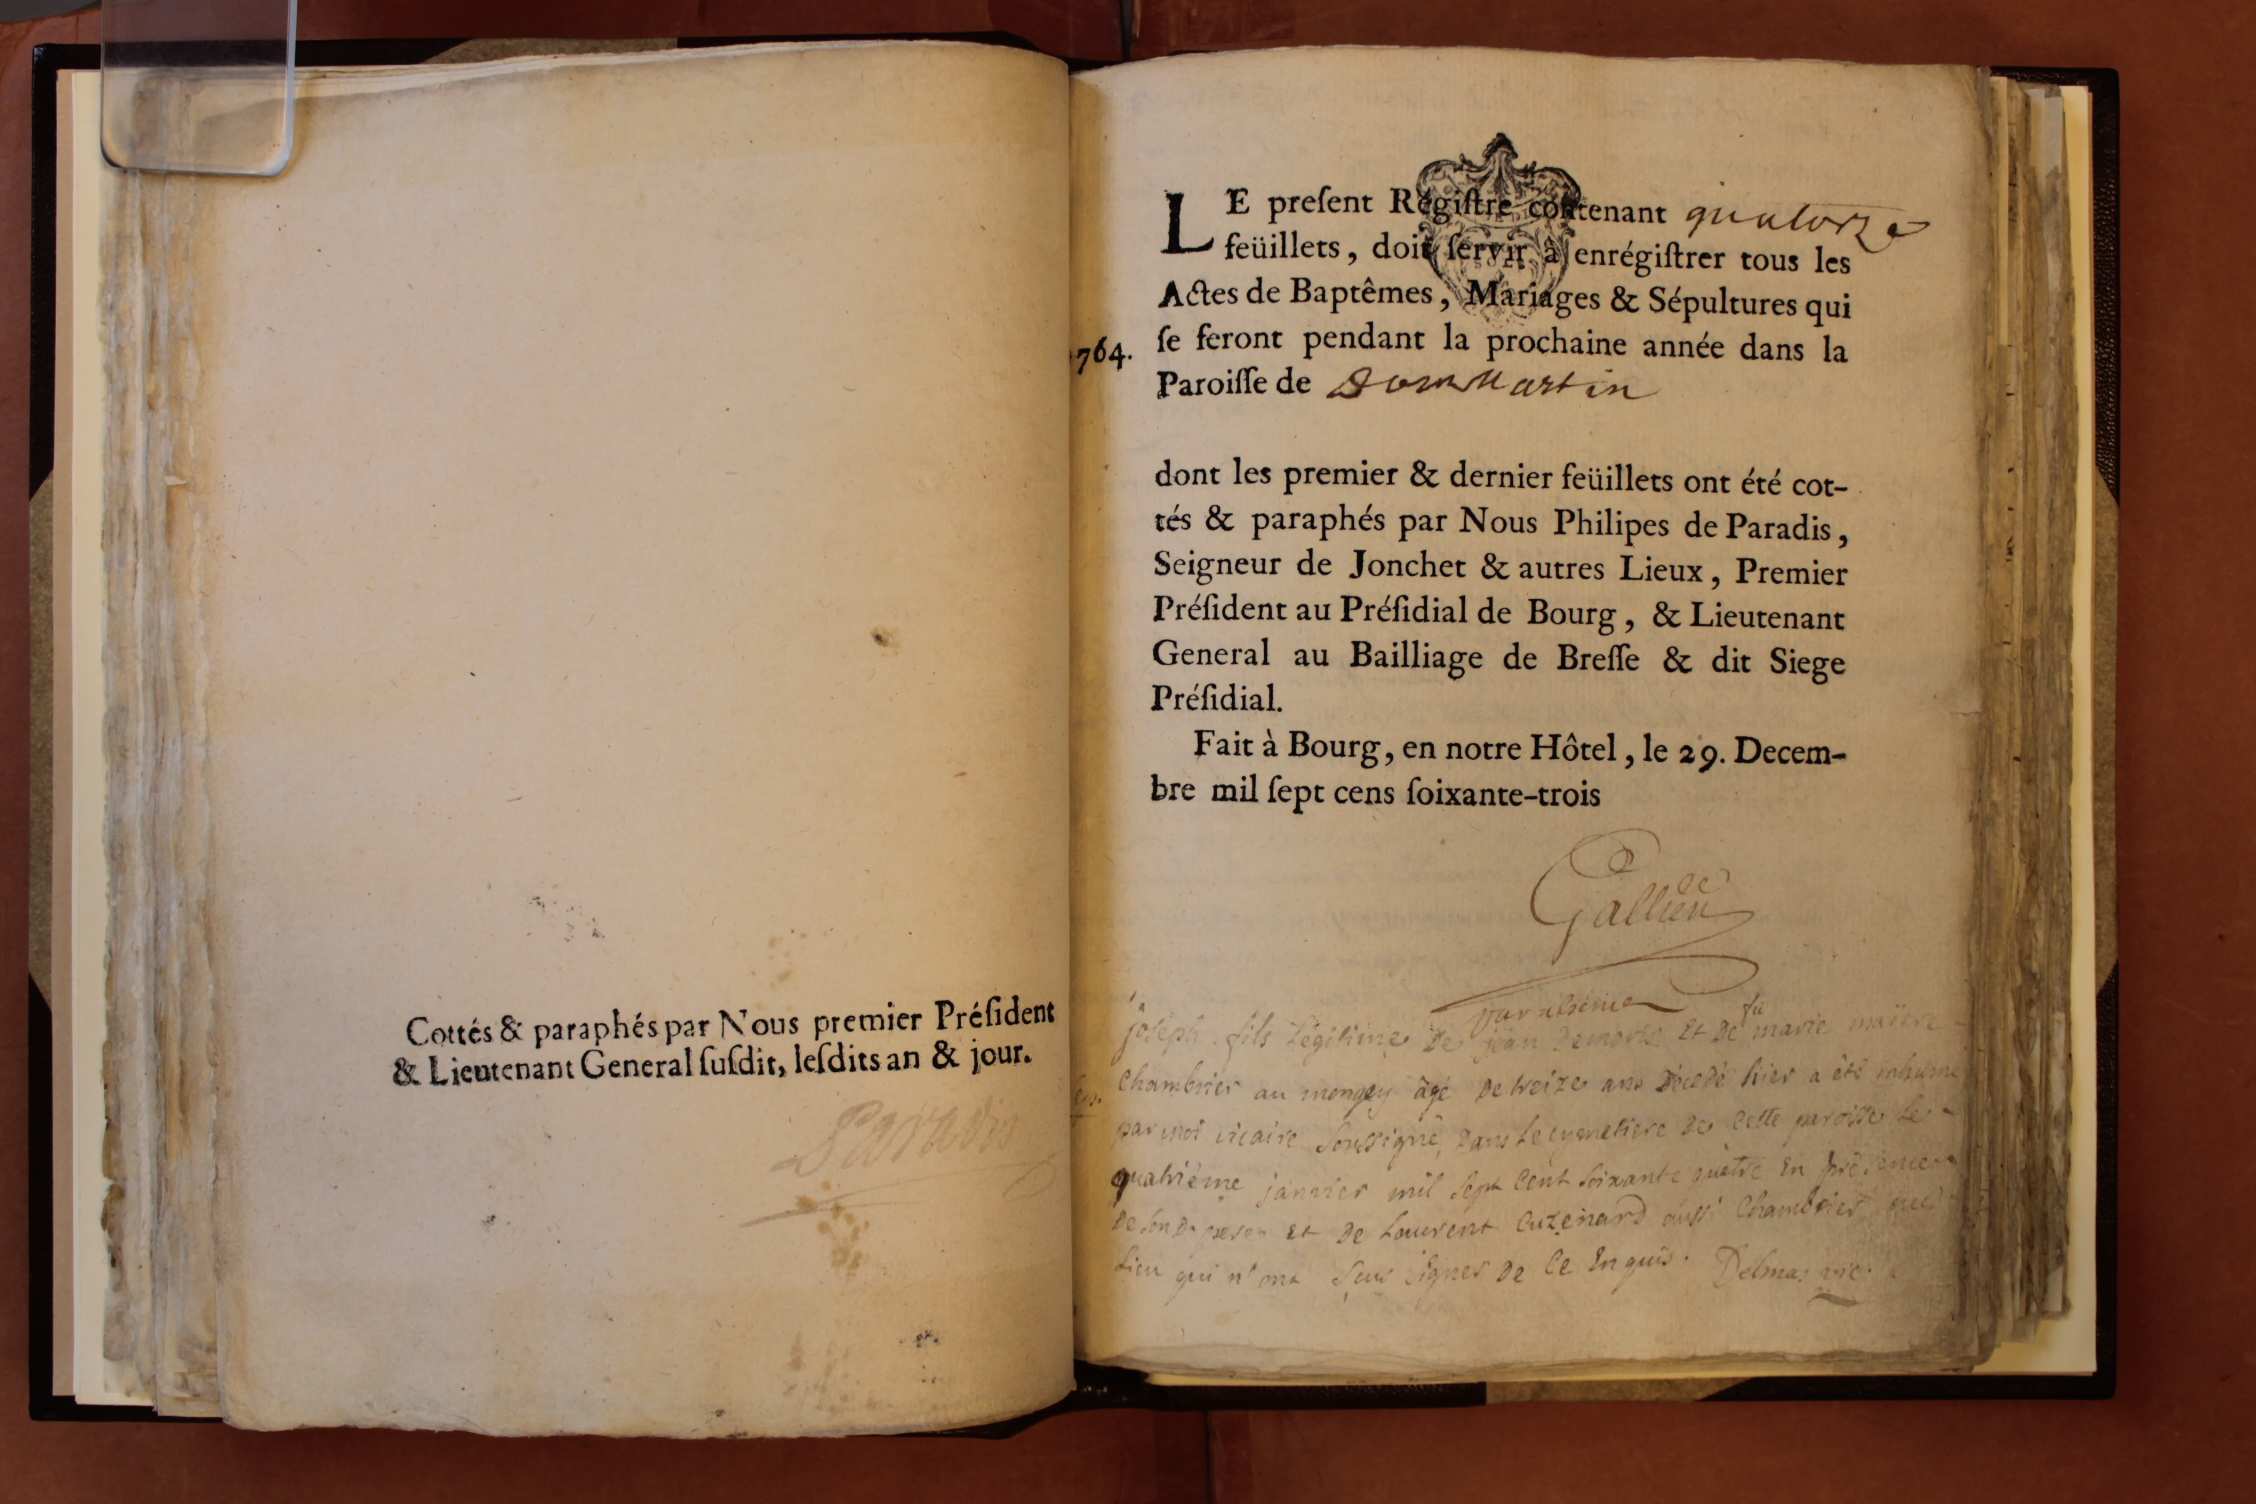 Cottés & paraphés par Nous premier Préſident
& Lieutenant General ſuſdit, leſdits an & jour.
Paradis
LE preſent Régiſtre contenant quatorze
feüillets, doit ſervir à enrégiſtrer tous les
Actes de Baptêmes, Mariages & Sépultures qui
ſe feront pendant la prochaine année dans la
764.
Paroiſſe de Dommartin
dont les premier & dernier feüillets ont été cot-
tés & paraphés par Nous Philipes de Paradis,
Seigneur de Jonchet & autres Lieux, Premier
Préſident au Préſidial de Bourg, & Lieutenant
General au Bailliage de Breſſe & dit Siege
Préſidial.
Fait à Bourg, en notre Hôtel, le 29. Decem-
bre mil ſept cens ſoixante-trois
Gallien
fü
joseph fils Légitime De jean Et De marie
Chambrier au mongey âgé De treize ans Décedé hier a été inhumé
par moi vicaire Soussigné, Dans Le cymetiere De Cette paroisse Le
quatriéme janvier mil Sept Cent Soixante quatre En présence
De Son Dt pere Et De Laurent Cuzenard aussi Chambrier
Lieu qui n'ont Sçus signer De Ce Enquis. Delmas vic.